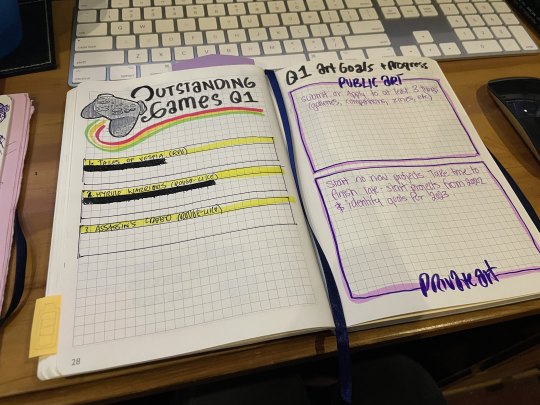 Outstanding
Games Q1
1. Tales of Vesperia (RPG)
Warriors (Rogue-like)
3. Assassin's Creed (Rogue-like)
28
Q1 Art Goals + Progress
Public Art
Submit or Apply to at least 3 things
(galleries, competitions, zines, etc)
Start no new projects. Take time to
finish projects from 2022
& identify goals for 2023
Private Art